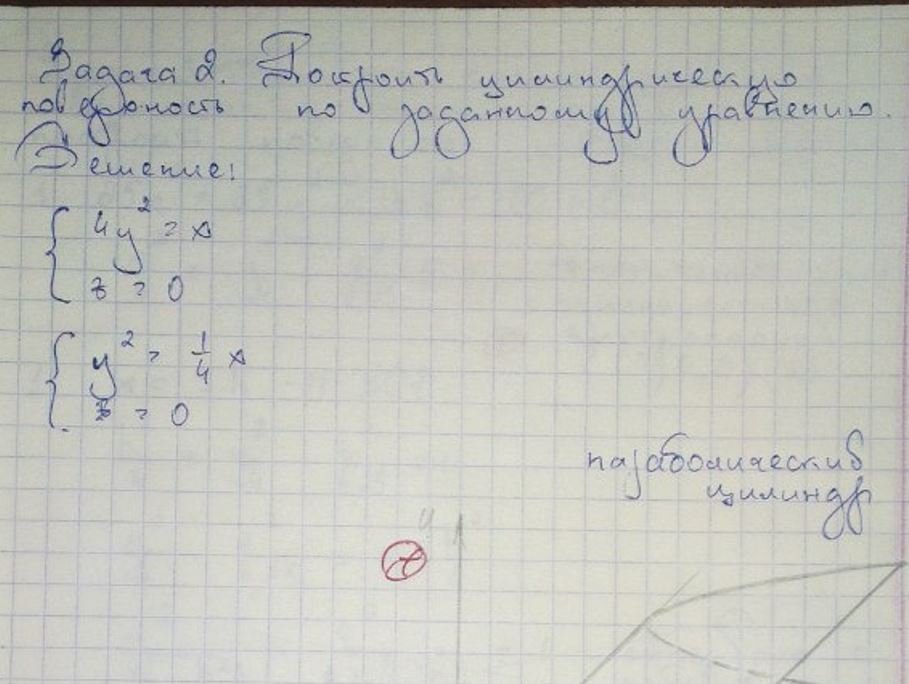 Задача 2. Построить цилиндрическую
поверхность по заданному уравнению.
Решение:
4y² = x
z = 0
y² = 1/4 x
z = 0
параболический
цилиндр
y